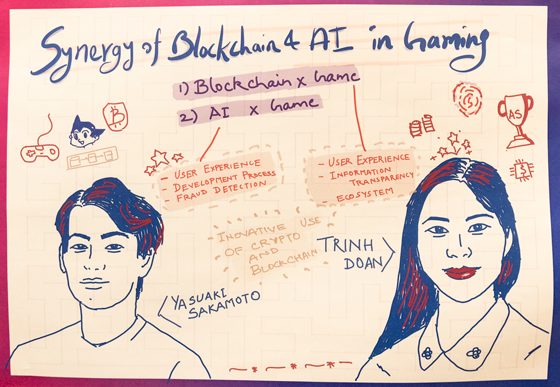 Synergy of Blockchain & AI in Gaming
1) Blockchain x Game
2) AI x Game
- USER EXPERIENCE
- DEVELOPMENT PROCESS
- FRAUD DETECTION
- USER EXPERIENCE
- INFORMATION
TRANSPARENCY
ECOSYSTEM
INOVATIVE USE
OF CRYPTO
AND
BLOCKCHAIN
TRINH
DOAN
YASUAKI
SAKAMOTO
B
AS
$